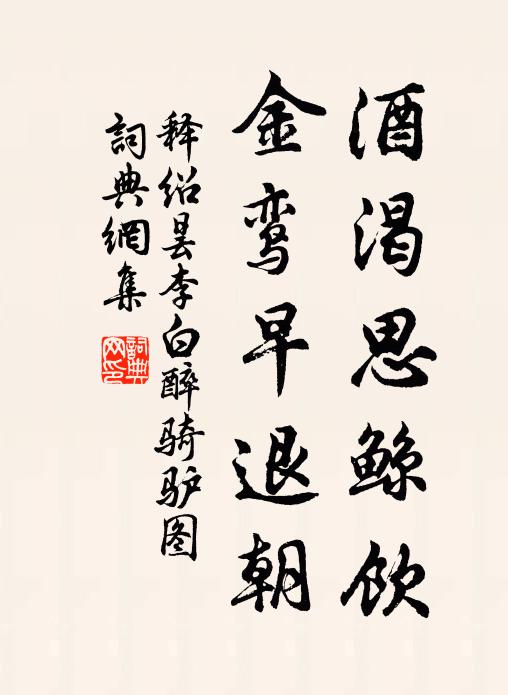 酒渴思鲸饮
金鸾早退朝
释绍昙李白醉骑驴图
詞典網集
詞典
网印